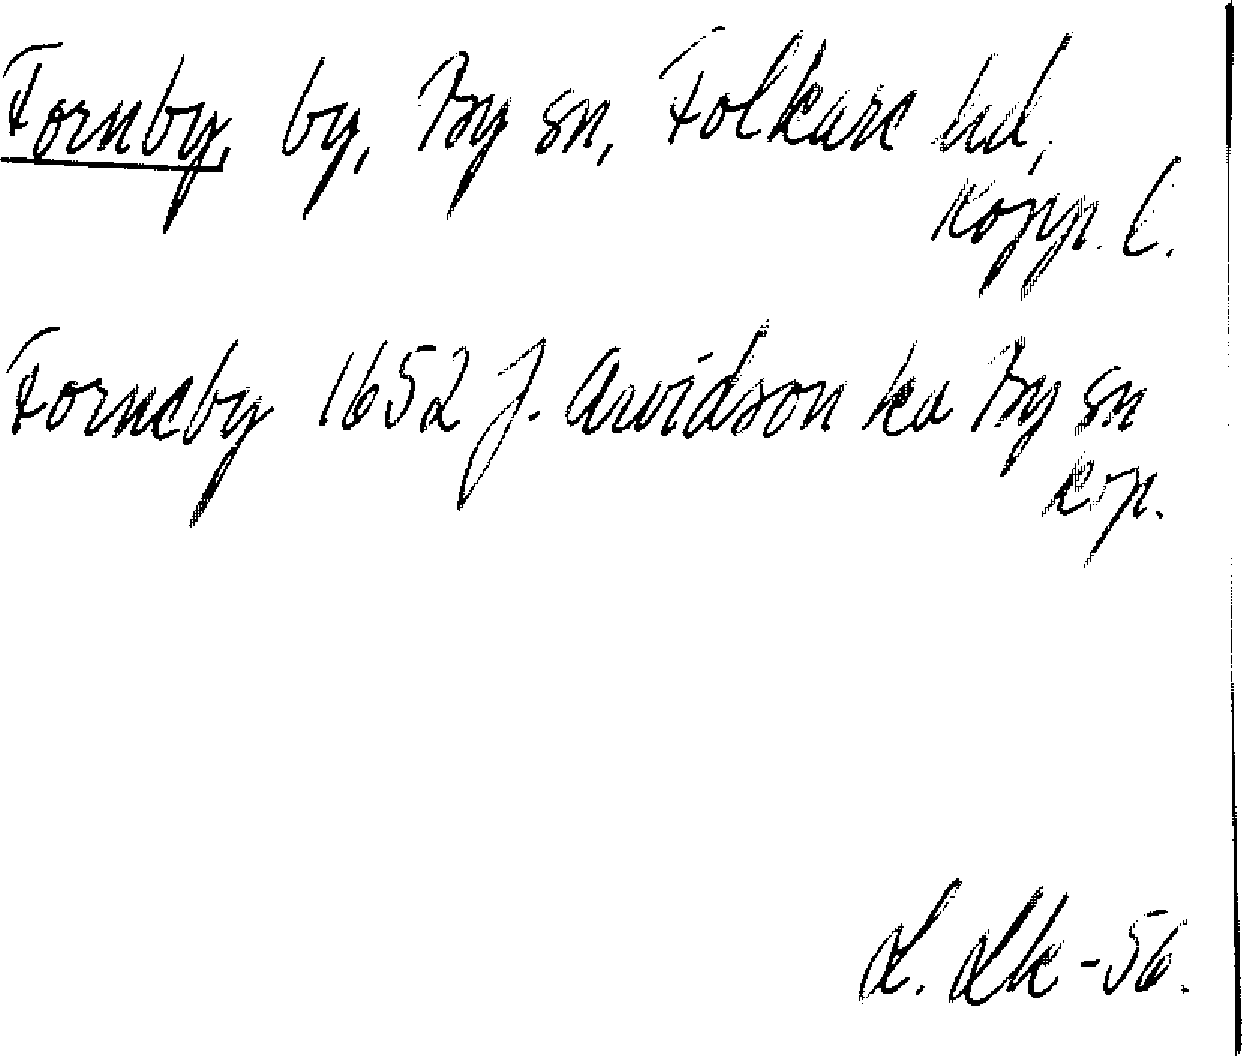 Fornby, by, By sn, Folkare hd,
Kopp. l.
Forneby 1652 J. Arvidson ka By sn
kop.
L. Lk - 56.